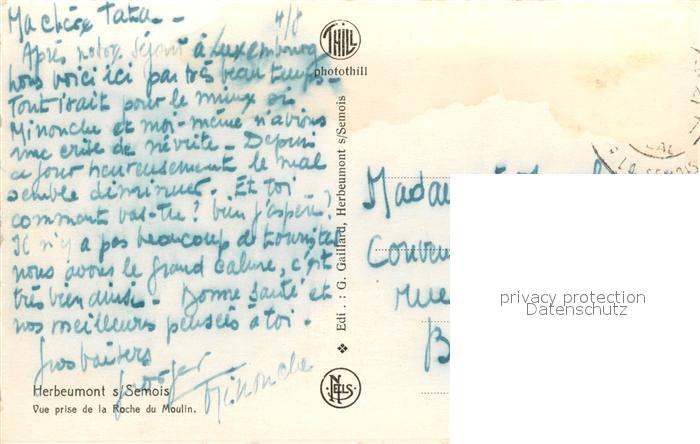 Ma chère Tata -
4/8
Après notre séjour à Luxembourg
nous voici ici par très beau temps -
Tout irait pour le mieux si
Minonche et moi-même n'avions
une crise de névrite - Depuis
ce jour heureusement le mal
semble diminuer. Et toi
comment vas-tu? bien j'espère?
Il n'y a pas beaucoup de touristes
nous avons le grand calme, c'est
très bien ainsi - Bonne santé et
nos meilleures pensées à toi.
Gros baisers
Minonche
Herbeumont s/Semois
Vue prise de la Roche du Moulin.
THILL
photothill
Edi. : G. Gaillard, Herbeumont s/Semois
NELS
LA SEMOIS
Mada
Conven
rue
B
privacy protection
Datenschutz